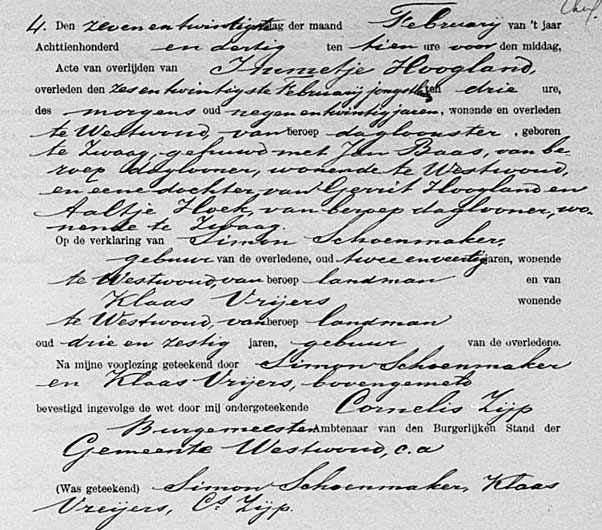 4. Den zevenentwintigste dag der maand Februarij van 't jaar
Achttienhonderd en dertig ten tien ure voor den middag,
Acte van overlijden van Immetje Hoogland,
overleden den zesentwintigste Februarij jongstl. ten drie ure,
des morgens oud negenentwintig jaren, wonende en overleden
te Westwoud, van beroep daglooster, geboren
te Zwaag, gehuwd met Jan Baas, van be-
roep daglooner, wonende te Westwoud,
en eene dochter van Gerrit Hoogland en
Aaltje Hoek, van beroep daglooner, wo-
nende te Zwaag.
Op de verklaring van Simon Schoenmaker,
gebuur van de overledene, oud twee en veertig jaren, wonende
te Westwoud, van beroep landman en van
Klaas Vrijers wonende
te Westwoud, van beroep landman
oud drie en zestig jaren, gebuur van de overledene.
Na mijne voorlezing geteekend door Simon Schoenmaker
en Klaas Vrijers, bovengemeld
bevestigd ingevolge de wet door mij ondergeteekende Cornelis Zijp
Burgemeester Ambtenaar van den Burgerlijken Stand der
Gemeente Westwoud, c.a
(Was geteekend) Simon Schoenmaker, Klaas
Vreijers, Cs Zijp.